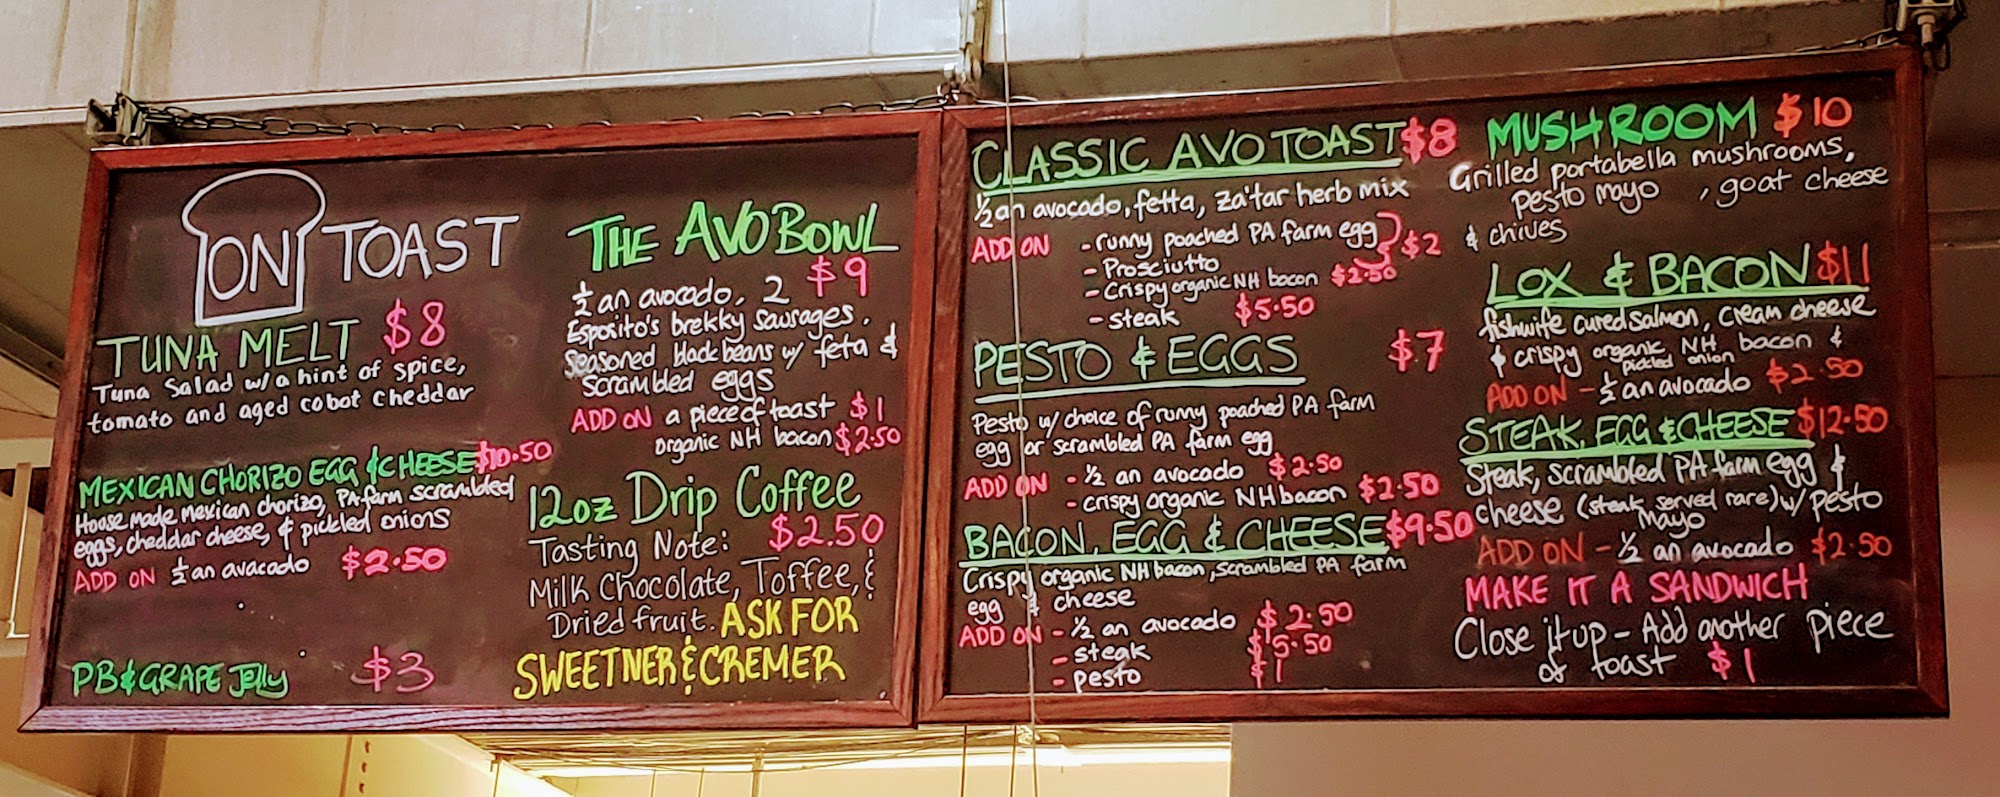 ON TOAST
TUNA MELT $8
Tuna Salad w/a hint of spice,
tomato and aged cobot cheddar
MEXICAN CHORIZO EGG & CHEESE $10.50
House made mexican chorizo, PA farm scrambled
eggs, cheddar cheese, & pickled onions
ADD ON ½ an avacado $2.50
PB & GRAPE Jelly $3
THE AVO BOWL
$9
½ an avocado, 2
Esposito's brekky sausages.
Seasoned black beans w/ feta &
scrambled eggs
ADD ON a piece of toast $1
organic NH bacon $2.50
12oz Drip Coffee
Tasting Note: $2.50
Milk Chocolate, Toffee, &
Dried fruit. ASK FOR
SWEETNER & CREMER
CLASSIC AVO TOAST $8
½ an avocado, fetta, za'tar herb mix
ADD ON - runny poached PA farm egg } $2
- Prosciutto
- Crispy organic NH bacon $2.50
- steak $5.50
PESTO & EGGS $7
Pesto w/ choice of runny poached PA farm
egg or scrambled PA farm egg
ADD ON - ½ an avocado $2.50
- crispy organic NH bacon $2.50
BACON, EGG & CHEESE $9.50
Crispy organic NH bacon, scrambled PA farm
egg & cheese
ADD ON - ½ an avocado $2.50
- steak $5.50
- pesto $1
MUSHROOM $10
Grilled portabella mushrooms,
pesto mayo , goat cheese
& chives
LOX & BACON $11
fishwife cured salmon, cream cheese
& crispy organic NH bacon &
pickled onion
ADD ON - ½ an avocado $2.50
STEAK, EGG & CHEESE $12.50
Steak, scrambled PA farm egg &
cheese (steak served rare) w/ pesto
Mayo
ADD ON - ½ an avocado $2.50
MAKE IT A SANDWICH
Close it up - Add another piece
of toast $1